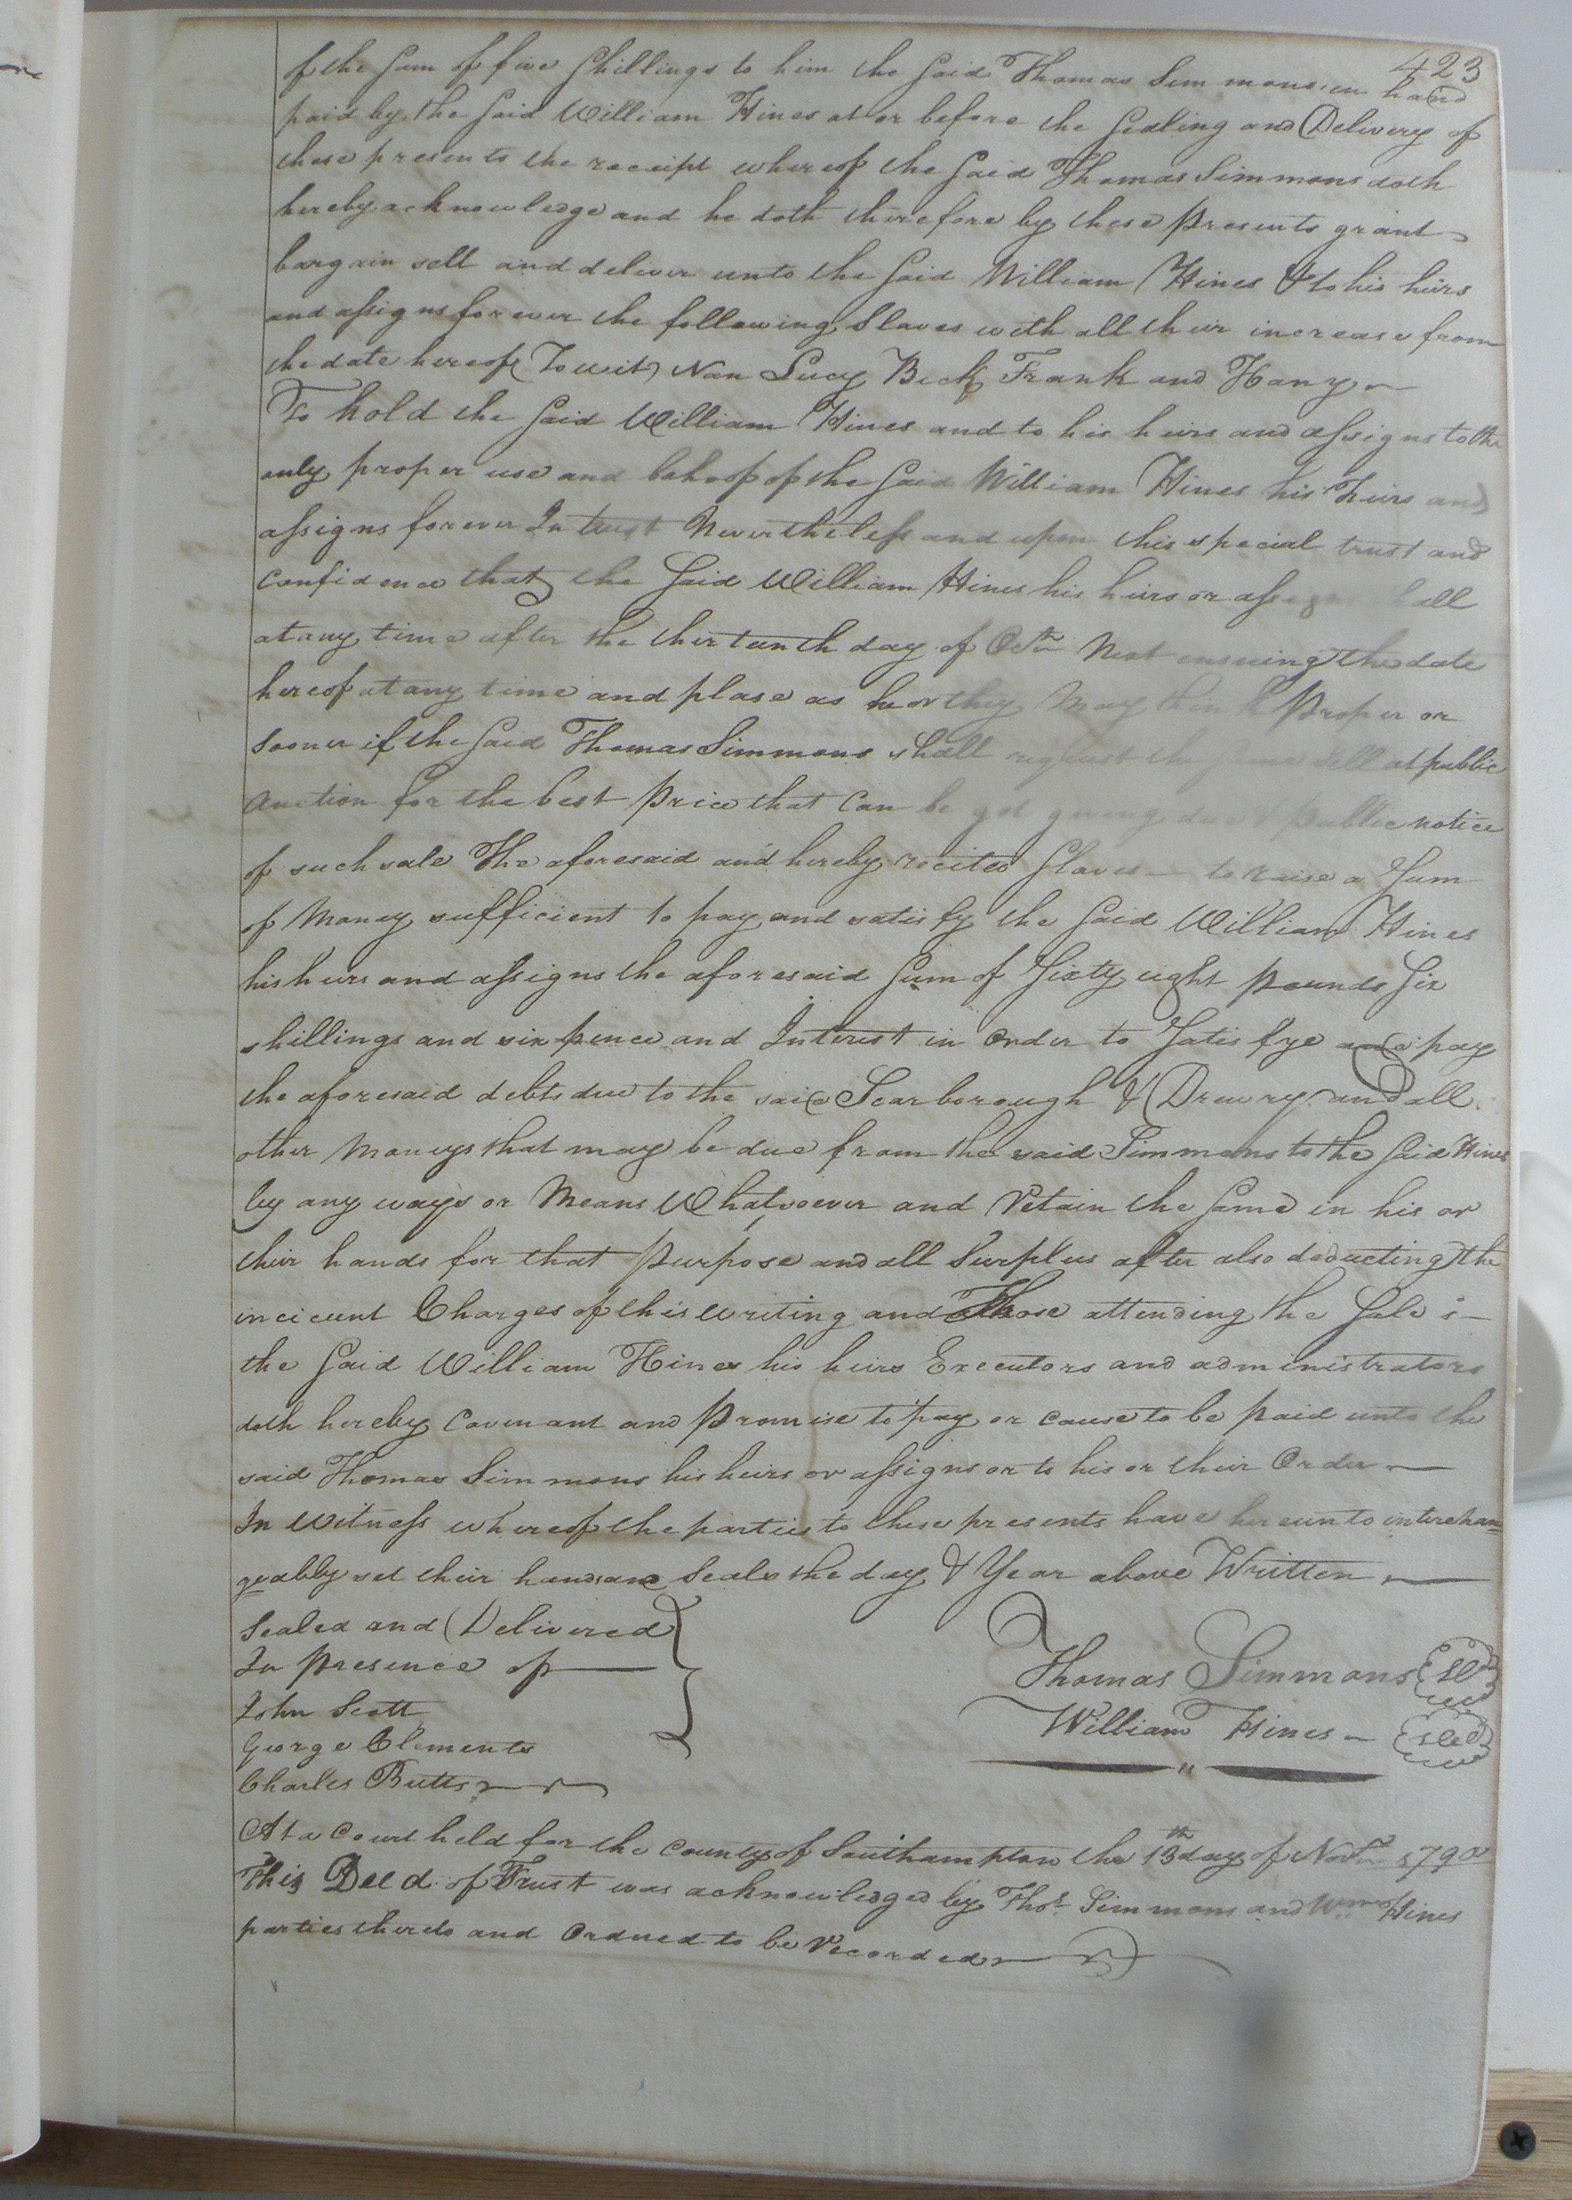 423
of the Sum of five Shillings to him the Said Thomas Simmons in hand
paid by the Said William Hines at or before the Sealing and Delivery of
these presents the receipt whereof the Said Thomas Simmons doth
hereby acknowledge and he doth therefore by these Presents grant
bargain sell and deliver unto the Said William Hines & to his heirs
and assigns forever the following Slaves with all their increase from
the date hereof (Towit) Nan Lucy Beck Frank and Hany
To hold the Said William Hines and to his heirs and assigns to the
only proper use and behoof of the Said William Hines his heirs and
assigns forever In trust Nevertheless and upon this special trust and
Confidence that the Said William Hines his heirs or assigns shall
at any time after the thirteenth day of Octr. Next ensuing the date
hereof at any time and plase as he or they May think Proper or
Sooner if the Said Thomas Simmons shall request the same Sell at public
Auction for the best Price that Can be got giving due & Public notice
of such sale The aforesaid and hereby recited Slaves to raise a Sum
of Money sufficient to pay and satisfy the Said William Hines
his heirs and assigns the aforesaid Sum of Sixty eight Pounds Six
shillings and six pence and Interest in Order to Satisfye and pay
the aforesaid debts due to the said Scarborough & Drewry and all
other Moneys that may be due from the said Simmons to the Said Hines
by any ways or Means Whatsoever and Retain the Same in his or
their hands for that Purpose and all Surplus after also deducting the
incicent Charges of this writing and Those attending the Sale
the Said William Hines his heirs Executors and administrators
doth hereby Covenant and Promise to pay or cause to be paid unto the
said Thomas Simmons his heirs or assigns or to his or their Order
In Witness whereof the parties to these presents have hereunto interchan=
geably set their hands and Seals the day & Year above Written
Sealed and Delivered
In Presence of
John Scott
George Clements
Charles Butts
Thomas Simmons Sld
William Hines Sld
At a Court held for the County of Southampton the 13th day of Novr. 1790
This Deed of Trust was acknowledged by Thos. Simmons and Wm. Hines
parties thereto and Ordered to be Recorded